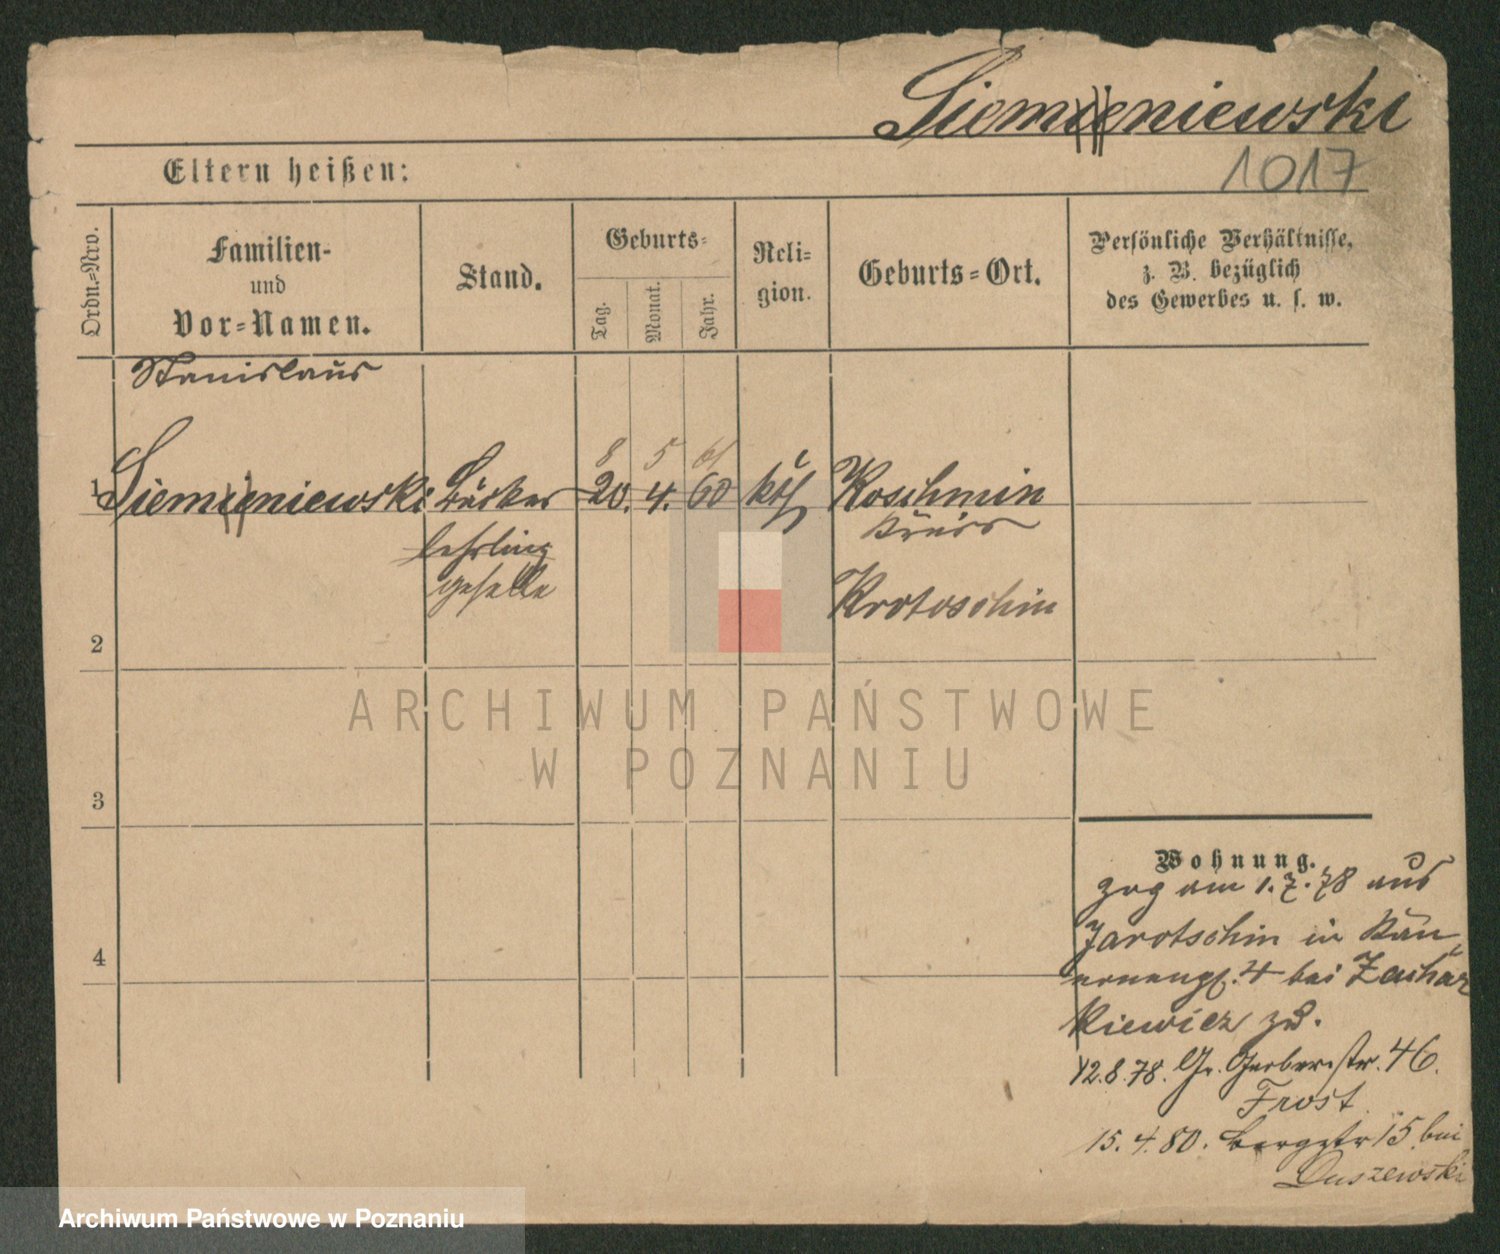 Siemieniewski
1017
Eltern heißen:
Ordn.-Nro.
Familien-
und
Vor-Namen.
Stand.
Geburts-
Tag.
Monat.
Jahr.
Reli-
gion.
Geburts-Ort.
Persönliche Verhältnisse,
z. B. bezüglich
des Gewerbes u. s. w.
Stanislaus
8 5 61
1 Siemieniewski Bäcker 20. 4. 60 kth Koschmin
Kreis
lehrling
geselle
Krotoschin
2
3
4
Wohnung.
zog am 1.7.78 aus
Jarotschin in
4 bei Zachar
kiewicz zu.
12.8.78. Gr. Gerberstr. 46.
Frost
15.4.80. Bergstr 15 bei
Duszewski
ARCHIWUM PAŃSTWOWE
W POZNANIU
Archiwum Państwowe w Poznaniu